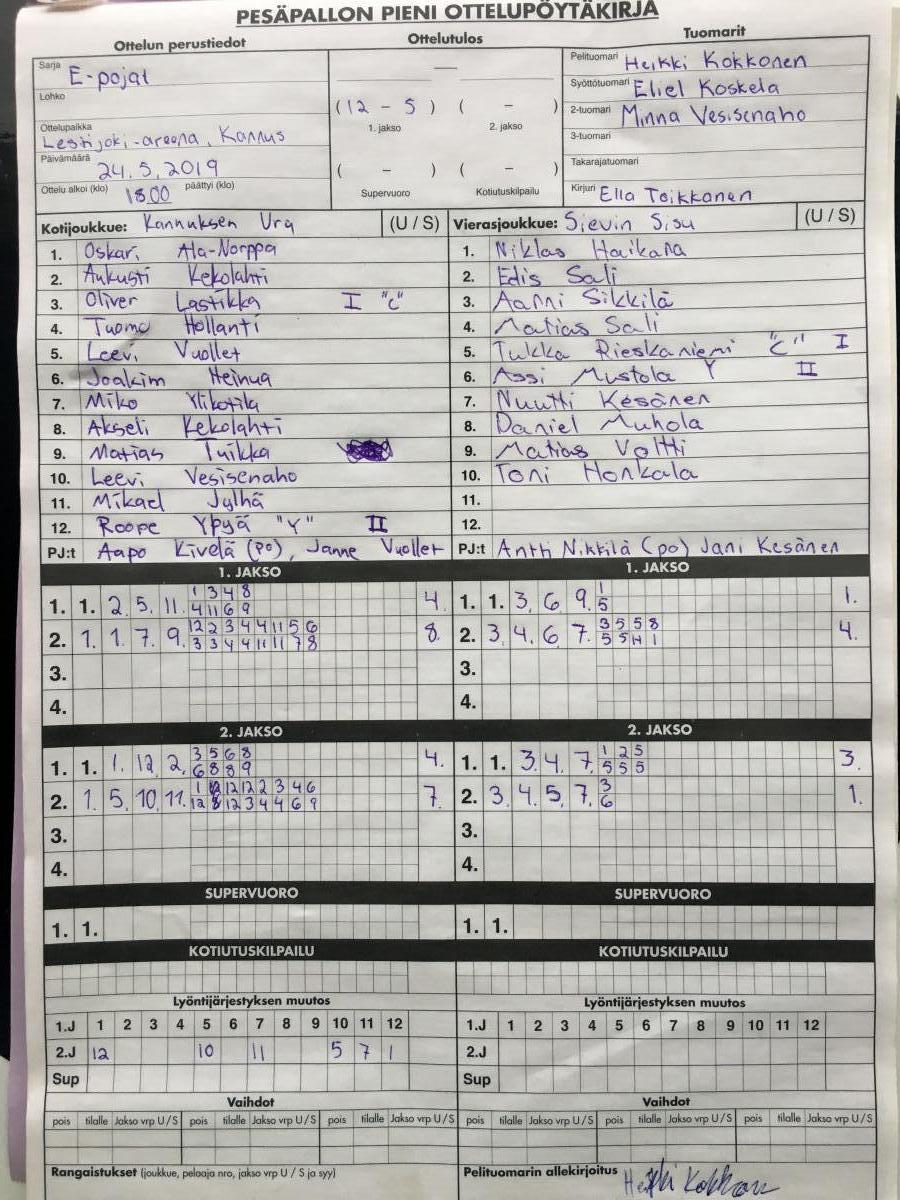 PESÄPALLON PIENI OTTELUPÖYTÄKIRJA
Ottelun perustiedot
Sarja E-pojat
Lohko
Ottelupaikka
Lestijoki-areena, Kannus
Päivämäärä 24.5.2019
Ottelu alkoi (klo) 18.00 päättyi (klo)
Ottelutulos
—
(12 - 5) ( - )
1. jakso 2. jakso
( - ) ( - )
Supervuoro Kotiutuskilpailu
Tuomarit
Pelituomari Heikki Kokkonen
Syöttötuomari Eliel Koskela
2-tuomari Minna Vesisenaho
3-tuomari
Takarajatuomari
Kirjuri Ella Toikkanen
Kotijoukkue: Kannuksen Ura (U / S)
1. Oskari Ala-Norppa
2. Aukusti Kekolahti
3. Oliver Lastikka I "C"
4. Tuomo Hollanti
5. Leevi Vuollet
6. Joakim Heinua
7. Miko Ylikotila
8. Akseli Kekolahti
9. Matias Tuikka
10. Leevi Vesisenaho
11. Mikael Jylhä
12. Roope Ypyä "Y" II
PJ:t Aapo Kivelä (po), Janne Vuollet
Vierasjoukkue: Sievin Sisu (U / S)
1. Niklas Haikana
2. Edis Sali
3. Aarni Sikkilä
4. Matias Sali
5. Tukka Rieskaniemi "C" I
6. Assi Mustola Y II
7. Nuutti Kesänen
8. Daniel Muhola
9. Matias Voltti
10. Toni Honkala
11.
12.
PJ:t Antti Nikkilä (po) Jani Kesänen
1. JAKSO
1. 1. 2. 5. 11. 1 3 4 8 4.
4 11 6 9
2. 1. 1. 7. 9. 12 2 3 4 4 11 5 6 8.
3 3 4 4 11 11 7 8
3.
4.
1. JAKSO
1. 1. 3. 6. 9. 1 1.
5
2. 3. 4. 6. 7. 3 5 5 8 4.
5 5 1
3.
4.
2. JAKSO
1. 1. 1. 12. 2. 3 5 6 8 4.
6 8 8 9
2. 1. 5. 10. 11. 1 12 12 2 3 4 6 7.
12 12 3 4 4 6 9
3.
4.
2. JAKSO
1. 1. 3. 4. 7. 1 2 5 3.
5 5 5
2. 3. 4. 5. 7. 3 1.
6
3.
4.
SUPERVUORO
1. 1.
SUPERVUORO
1. 1.
KOTIUTUSKILPAILU
KOTIUTUSKILPAILU
Lyöntijärjestyksen muutos
1.J 1 2 3 4 5 6 7 8 9 10 11 12
2.J 12 10 11 5 7 1
Sup
Lyöntijärjestyksen muutos
1.J 1 2 3 4 5 6 7 8 9 10 11 12
2.J
Sup
Vaihdot
pois tilalle Jakso vrp U/S pois tilalle Jakso vrp U/S pois tilalle Jakso vrp U/S
Vaihdot
pois tilalle Jakso vrp U/S pois tilalle Jakso vrp U/S pois tilalle Jakso vrp U/S
Rangaistukset (joukkue, pelaaja nro, jakso vrp U / S ja syy)
Pelituomarin allekirjoitus Heikki Kokkonen